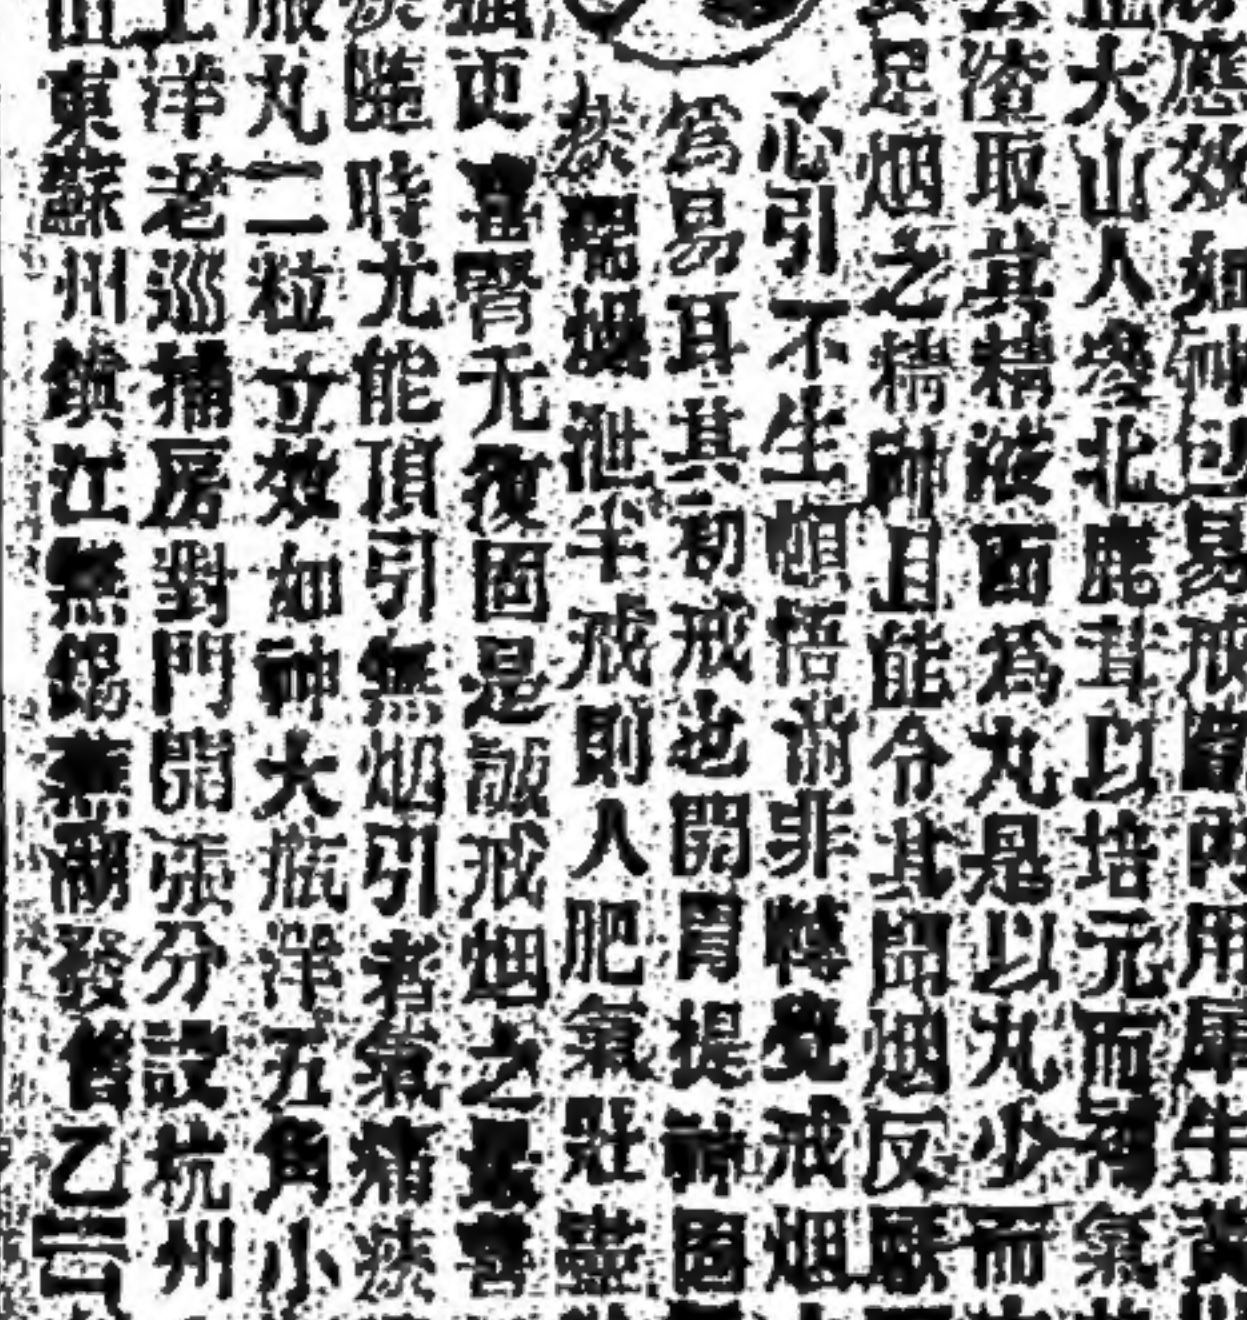 應效如神包易戒﻿兩用犀牛黃
大山人參北鹿茸以培元而補氣
去渣取其精液而為丸是以丸少而
足烟之精神且能令其聞烟反厭
心引不生頓悟前非轉覺戒烟
為易耳其初戒也開胃提神固
痰喘嗽泄半戒則人肥氣壯
更宜腎元復固是誠戒烟之最善
痰時尤能頂引無烟引者氣痛痰
服丸二粒立效如神大瓶洋五角小
上洋老巡捕房對門開張分設杭州
東蘇州鎮江無錫蕪湖發售乙